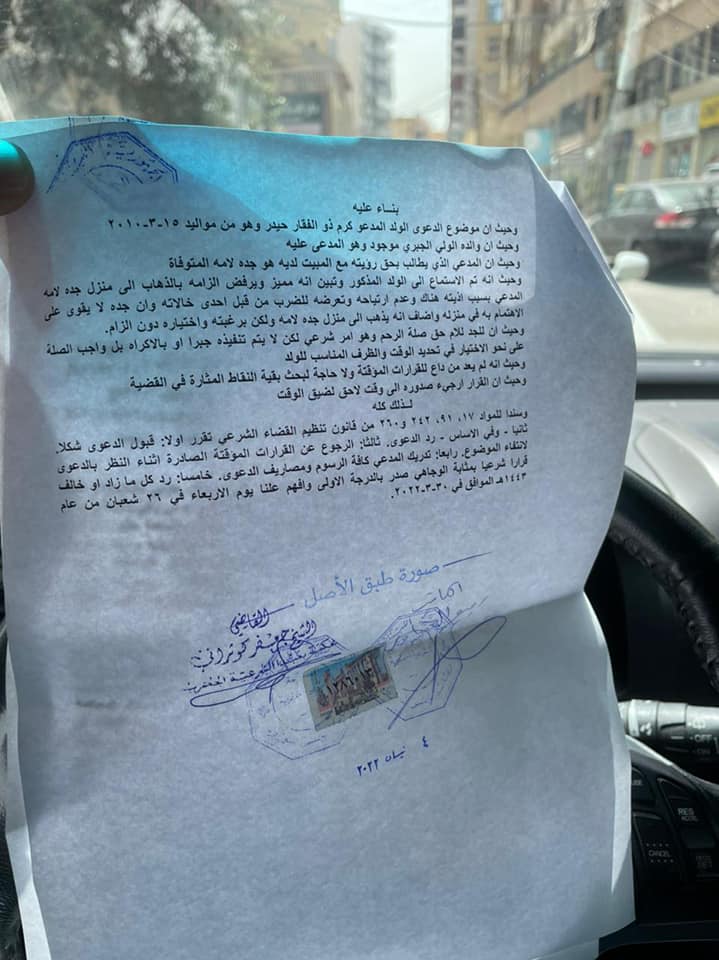 بنـــاء عليه
وحيث ان موضوع الدعوى الولد المدعو كرم ذو الفقار حيدر وهو من مواليد ١٥-٣-٢٠١٠
وحيث ان والده الولي الجبري موجود وهو المدعى عليه
وحيث ان المدعي الذي يطالب بحق رؤيته مع المبيت لديه هو جده لامه المتوفاة
وحيث انه تم الاستماع الى الولد المذكور وتبين انه مميز ويرفض الزامه بالذهاب الى منزل جده لامه
المدعي بسبب اذيته هناك وعدم ارتياحه وتعرضه للضرب من قبل احدى خالاته وان جده لا يقوى على
الاهتمام به في منزله واضاف انه يذهب الى منزل جده لامه ولكن برغبته واختياره دون الزام.
وحيث ان للجد للام حق صلة الرحم وهو امر شرعي لكن لا يتم تنفيذه جبرا او بالاكراه بل واجب الصلة
على نحو الاختيار في تحديد الوقت والظرف المناسب للولد
وحيث انه لم يعد من داع للقرارات المؤقتة ولا حاجة لبحث بقية النقاط المثارة في القضية
وحيث ان القرار ارجيء صدوره الى وقت لاحق لضيق الوقت
لـــذلك كله
وسندا للمواد ١٧، ٩١، ٢٤٢ و٢٦٠ من قانون تنظيم القضاء الشرعي تقرر اولا: قبول الدعوى شكلا.
ثانيا - وفي الاساس - رد الدعوى. ثالثا: الرجوع عن القرارات المؤقتة الصادرة اثناء النظر بالدعوى
لانتفاء الموضوع. رابعا: تدريك المدعي كافة الرسوم ومصاريف الدعوى. خامسا: رد كل ما زاد او خالف
قرارا شرعيا بمثابة الوجاهي صدر بالدرجة الاولى وافهم علنا يوم الاربعاء في ٢٦ شعبان من عام
١٤٤٣هـ الموافق في ٣٠-٣-٢٠٢٢.
صورة طبق الأصل
القاضي
الشيخ جعفر كوثراني
الكاتب
٤ نيسان ٢٠٢٢
OFF
ON
RES
CANCEL